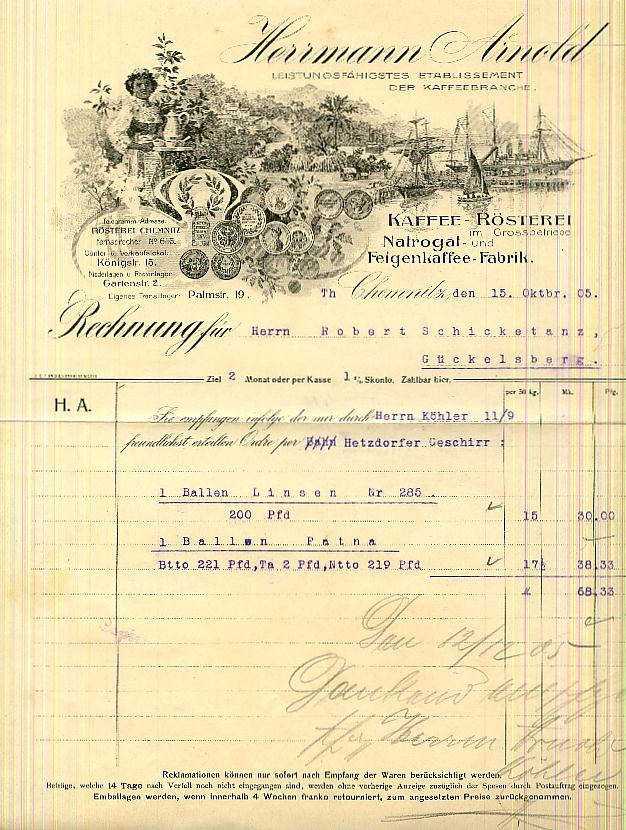 Herrmann Arnold
LEISTUNGSFÄHIGSTES ETABLISSEMENT
DER KAFFEEBRANCHE.
Telegramm-Adresse:
RÖSTEREI CHEMNITZ
Fernsprecher Nº 615.
Contor u. Verkaufslokal:
Königstr. 15.
Niederlagen u. Röstanlagen:
Gartenstr. 2.
Eigenes Transitlager: Palmstr. 19.
KAFFEE-RÖSTEREI
im Grossbetriebe
Natrogat- und
Feigenkaffee-Fabrik.
Th Chemnitz, den 15. Oktbr. 05.
Rechnung für Herrn Robert Schicketanz,
Gückelsberg.
Ziel 2 Monat oder per Kasse 1 % Skonto. Zahlbar hier.
per 50 kg. Mk. Pfg.
H. A.
Sie empfangen infolge der mir durch Herrn Köhler 11/9
freundlichst erteilten Ordre per Bahn Hetzdorfer Geschirr :
1 Ballen Linsen Nr 285.
200 Pfd 15 30.00
1 Ballen Patna
Btto 221 Pfd,Ta 2 Pfd,Ntto 219 Pfd 17½ 38.33
68.33
Den 12/12 05
Dankend
Herrn
Köhler
Reklamationen können nur sofort nach Empfang der Waren berücksichtigt werden.
Beträge, welche 14 Tage nach Verfall noch nicht eingegangen sind, werden ohne vorherige Anzeige zuzüglich der Spesen durch Postauftrag eingezogen.
Emballagen werden, wenn innerhalb 4 Wochen franko retourniert, zum angesetzten Preise zurückgenommen.